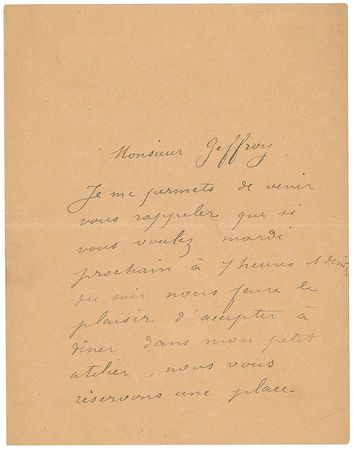 Monsieur Geffroy
Je me permets de venir
vous rappeler que si
vous voulez mardi
prochain à 7 heures 1 demie
du soir nous faire le
plaisir d'accepter à
dîner dans mon petit
atelier, nous vous
réservons une place